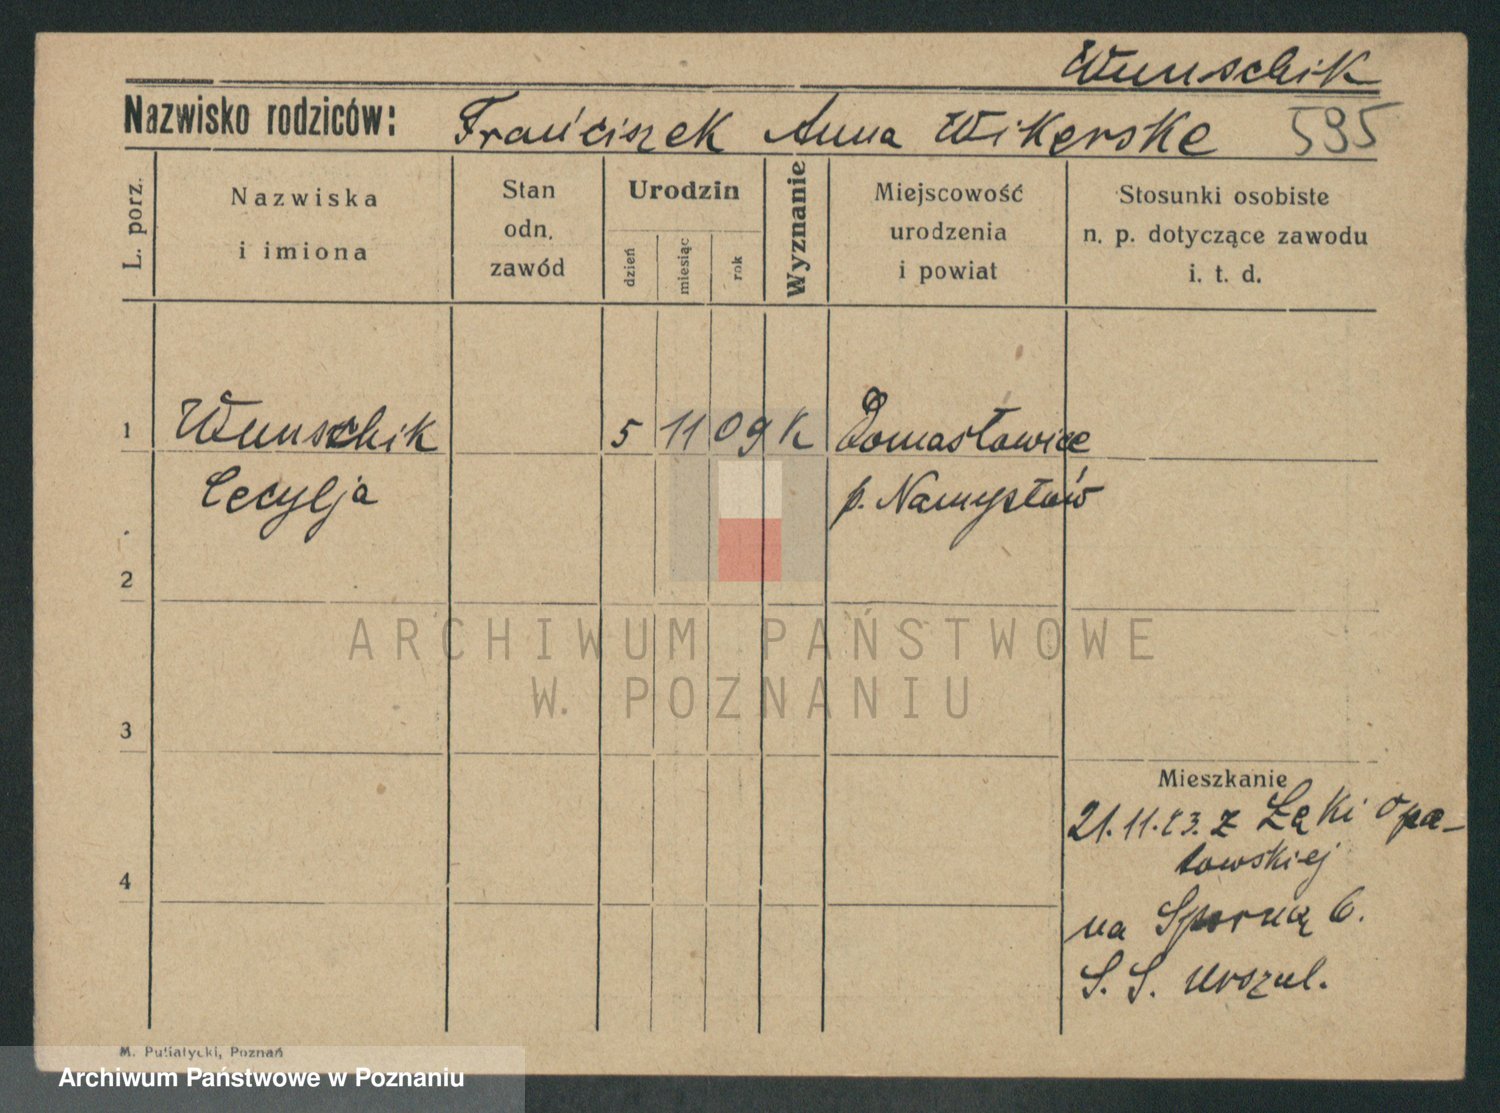 Wunschik
Nazwisko rodziców: Frańciszek Anna Wikerske 595
L. porz.
Nazwiska
i imiona
Stan
odn.
zawód
Urodzin
dzień
miesiąc
rok
Wyznanie
Miejscowość
urodzenia
i powiat
Stosunki osobiste
n. p. dotyczące zawodu
i. t. d.
1 Wunschik 5 11 09 K Domasłowice
Cecylja p. Namysłów
2
3
Mieszkanie
21.11.23. z Łąki Opa-
towskiej
4
na Sporną 6.
S. S. Urszul.
M. Putiatycki, Poznań
ARCHIWUM PAŃSTWOWE
W. POZNANIU
Archiwum Państwowe w Poznaniu